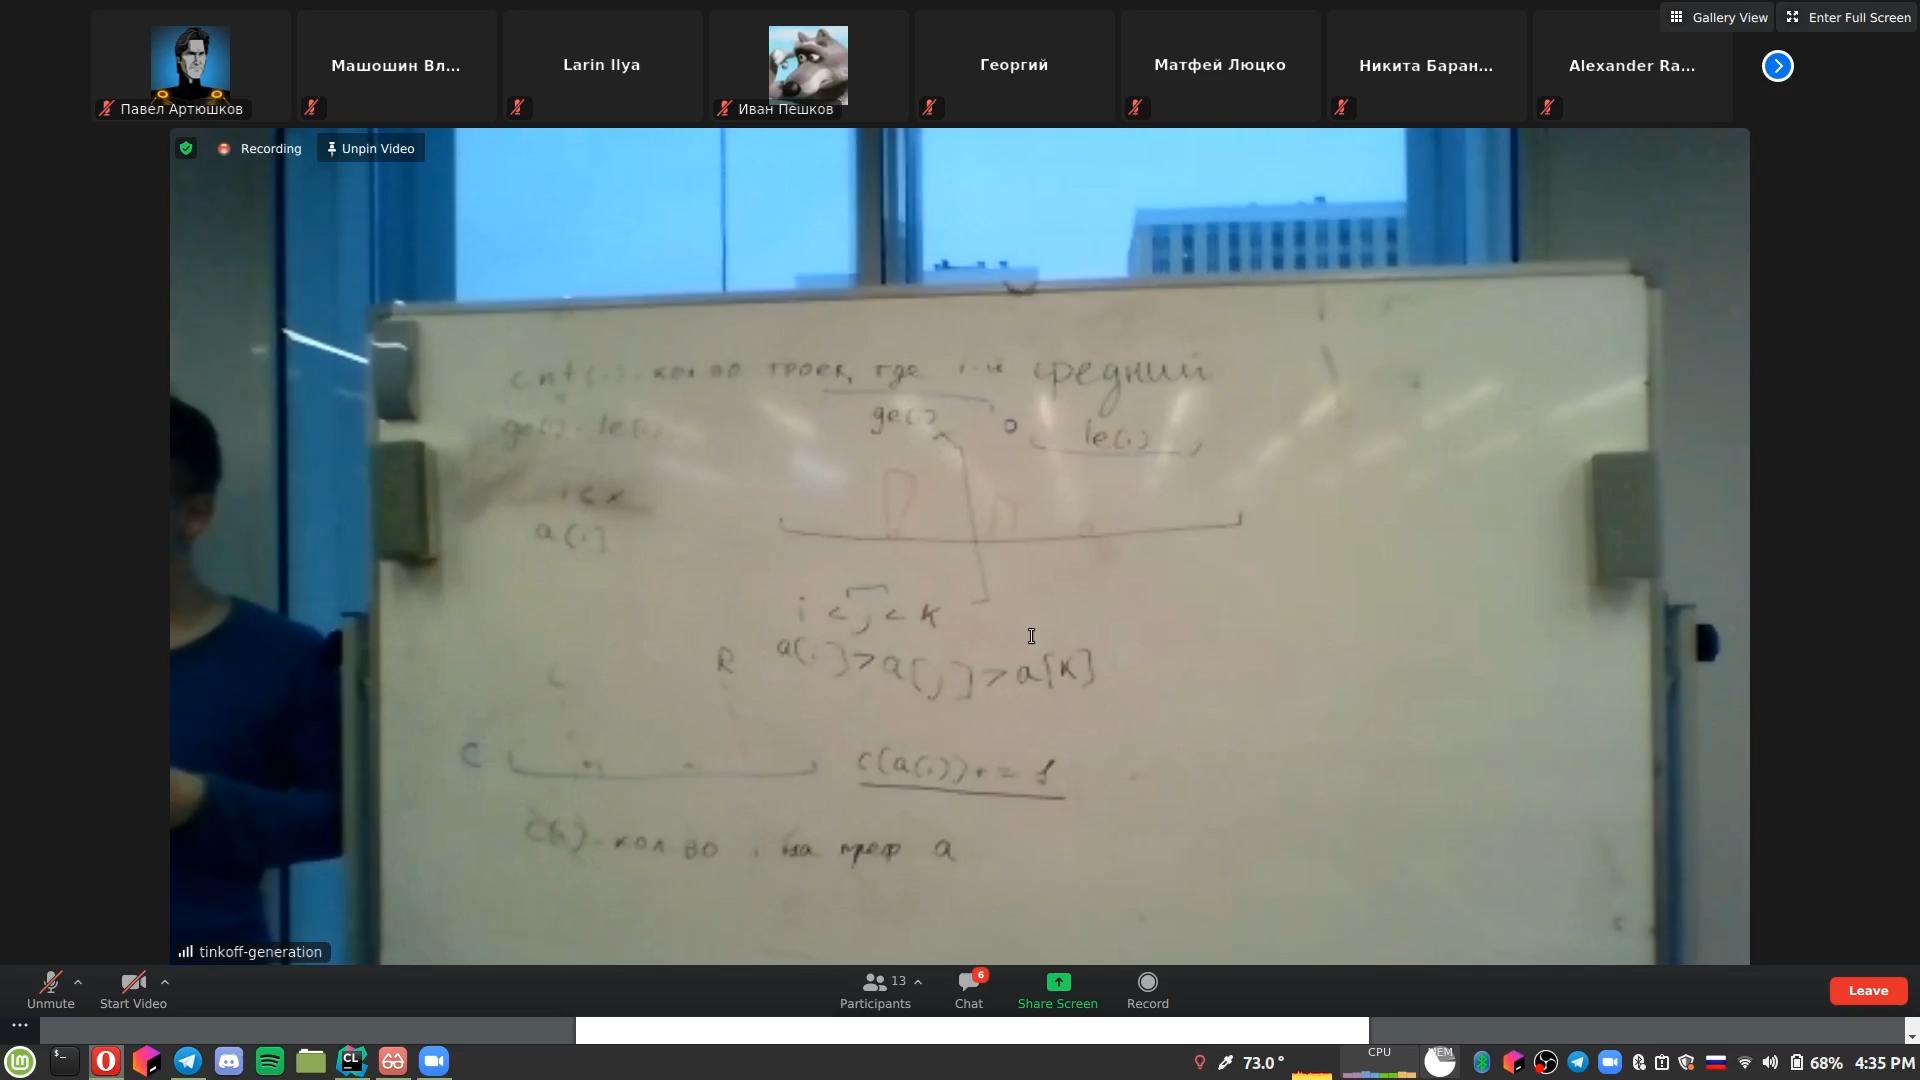 Gallery View
Enter Full Screen
Павел Артюшков
Машошин Вл...
Larin Ilya
Иван Пешков
Георгий
Матфей Люцко
Никита Баран...
Alexander Ra...
Recording
Unpin Video
cnt(i) - кол во троек, где i-й средний
ge(i) · le(i)
ge(i)
le(i)
a[i]
i < j < k
a[i] > a[j] > a[k]
L
R
C
c[a[i]] += 1
кол во
на преф a
tinkoff-generation
Unmute
Start Video
13
Participants
6
Chat
Share Screen
Record
Leave
CL
73.0°
CPU
MEM
68%
4:35 PM